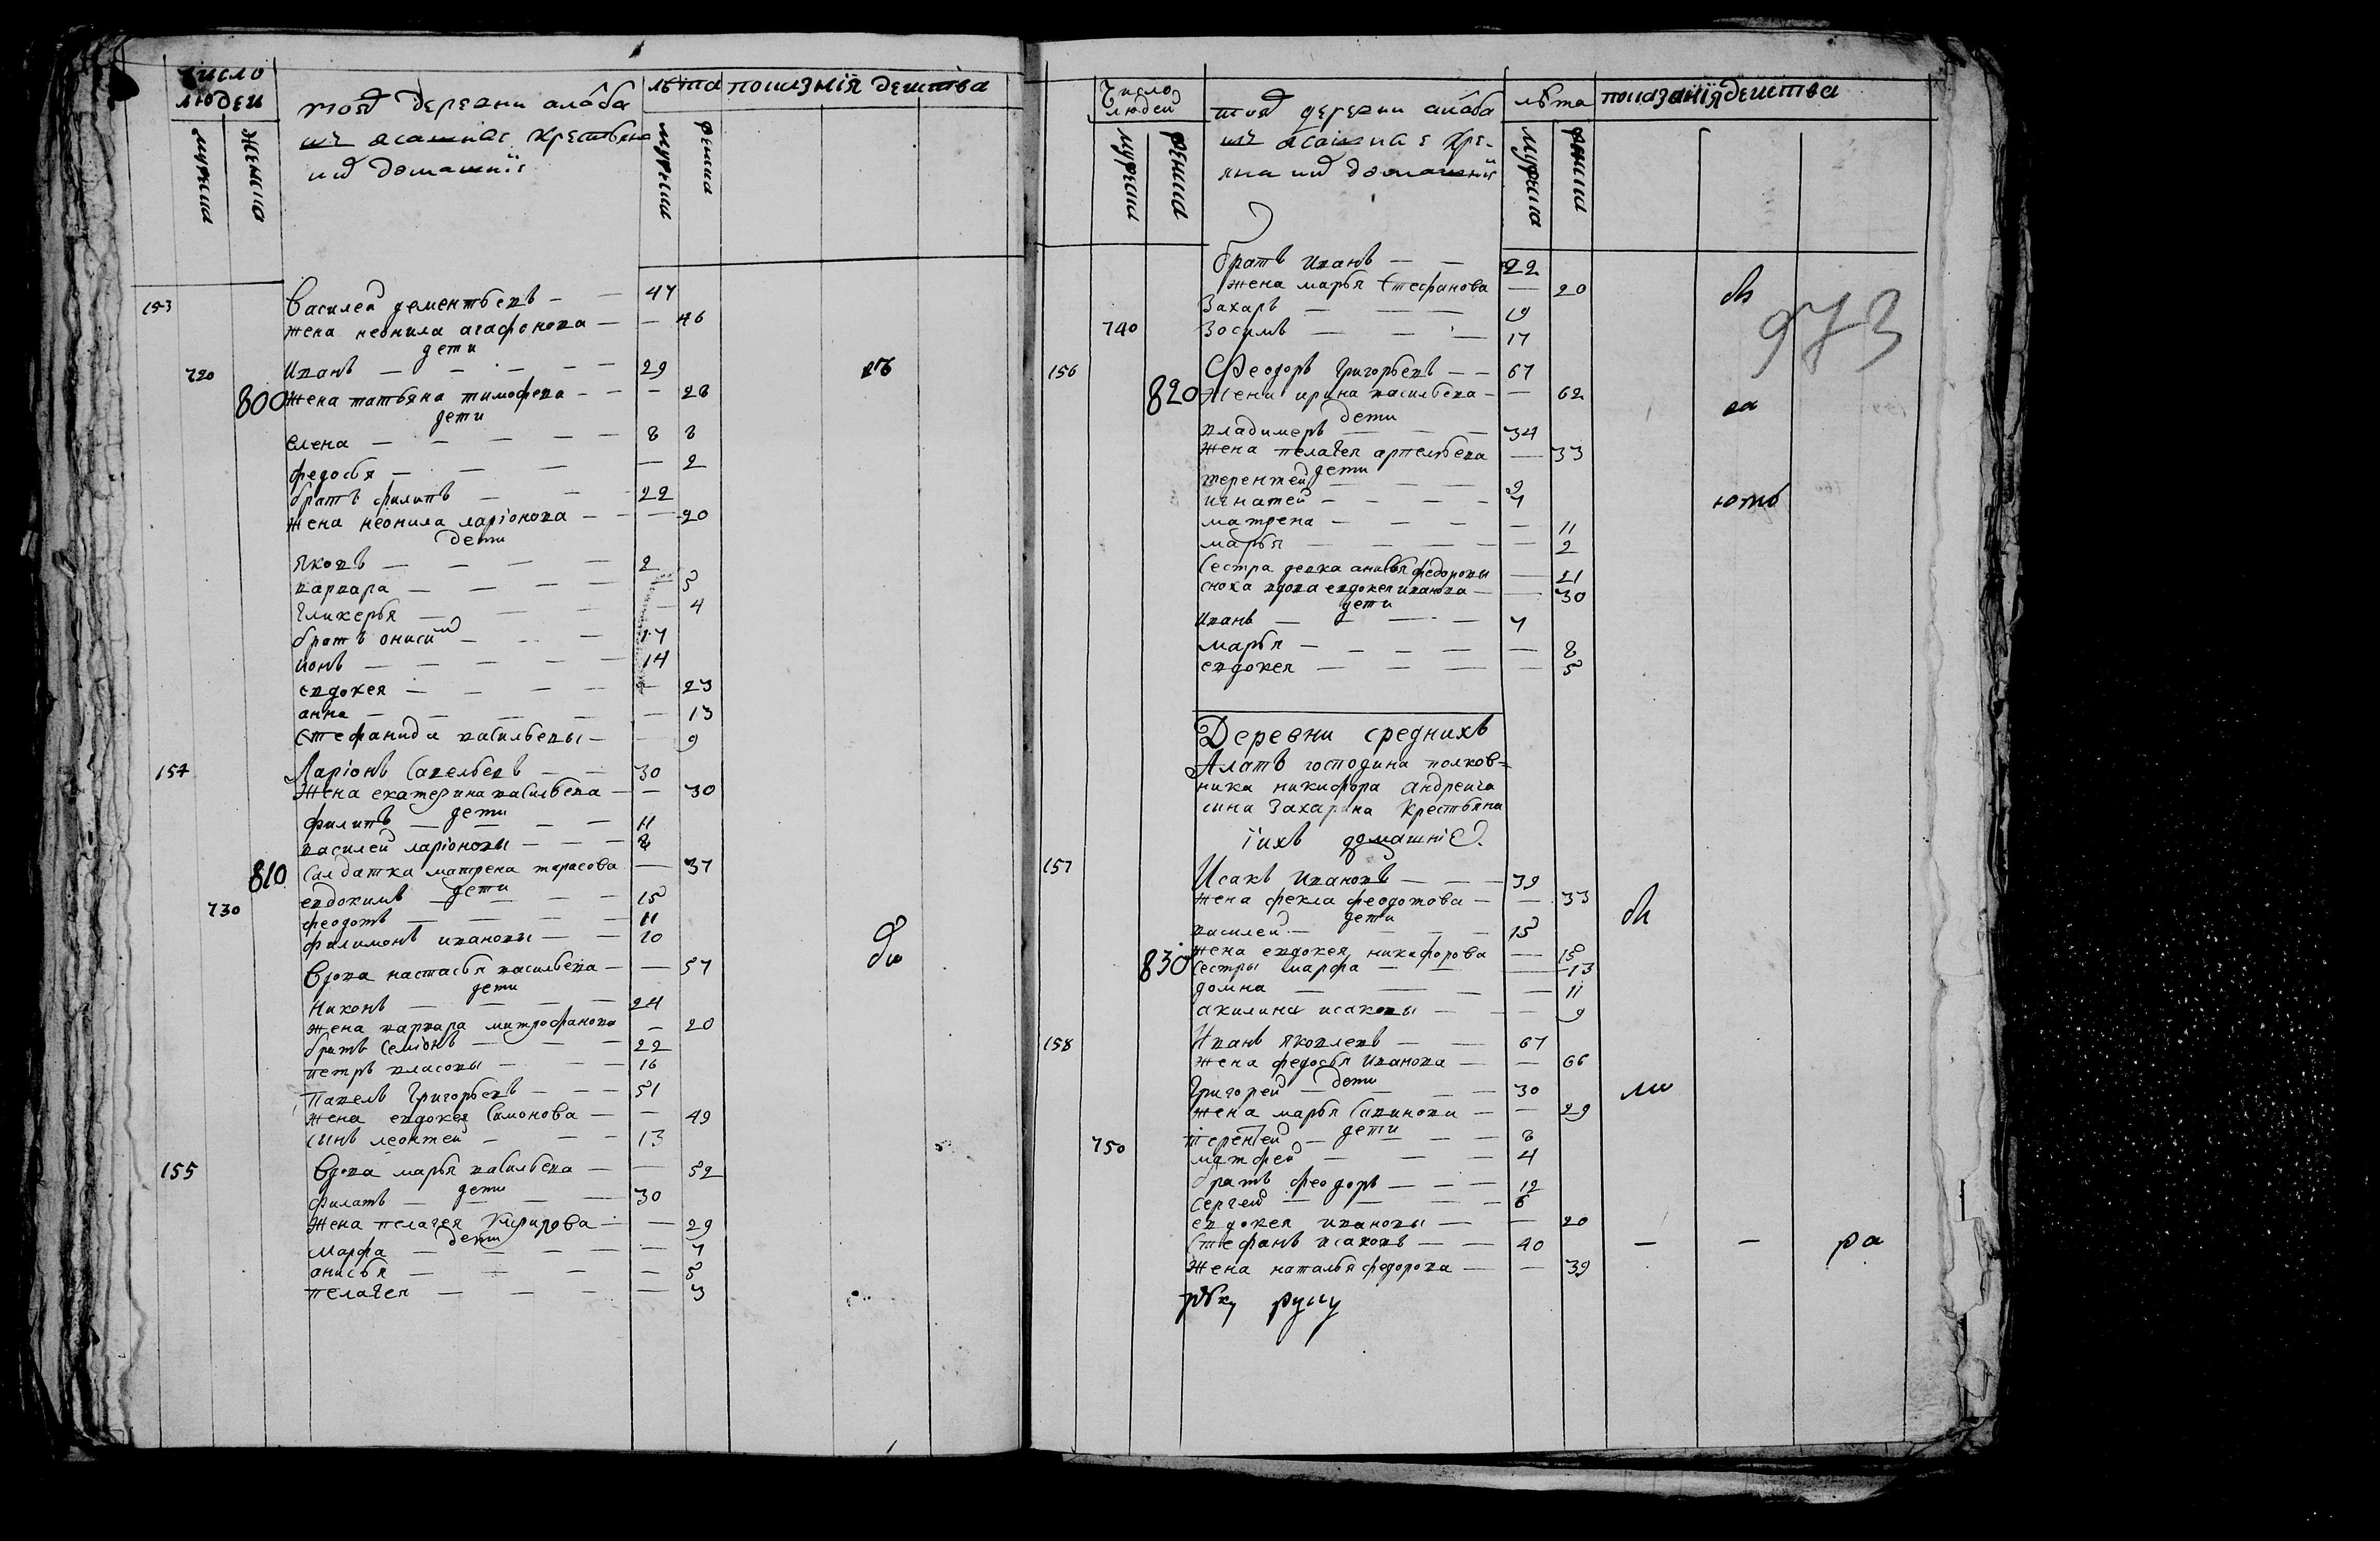 число людей
мужеска
женска
тоя деревни
крестьяне
их домашнїе
лѣта
мужески
женска
показанїя действа
153
Василей дементьевъ — — 47
жена неонила агафонова — — 46
дети
720
Иванъ — — — — 29
800
жена татьяна тимофева — — 28
дети
елена — — — — 8 8
федосья — — — — 2
братъ филипъ — — 22
жена неонила ларїонова — — 20
дети
яковъ — — — — 2
варвара — — — — 5
гликерья — — — — 4
братъ онисим — — — 17
ионъ — — — — 14
евдокея — — — — 23
анна — — — — 13
стефанида васильевы — — 9
154
Ларїонъ савельевъ — — 30
Жена екатерина васильева — — 30
дети
филипъ — — — — 11
василей ларїоновы — — — 8
810
Салдатка матрена тарасова — 37
дети
730
евдокимъ — — — 15
феодотъ — — — — 11
филимонъ ивановы — — 10
Вдова настасья васильева — — 57
дети
Никонъ — — — — 24
жена варвара митрофанова — 20
братъ Семїонъ — — — 22
петръ власовы — — — 16
Павелъ Григорьевъ — — — 51
жена евдокея Симонова — — 49
сынъ леонтей — — — 13
155
Вдова марья васильева — — 52
дети
филатъ — — — — 30
жена пелагея Кирирова — — 29
дети
Марфа — — — — 7
анисья — — — — 5
пелагея — — — — 3
ди
Число людей
мужески
женска
тоя деревни
их домашнїи
лѣта
мужеска
женски
показанїя действа
братъ иванъ — — 22
жена марья Стефанова — 20
973
Захаръ — — — 19
740
Зосимъ — — — 17
156
Феодоръ Григорьевъ — — 67
820
Жена ирина васильева — — 62
дети
владимеръ — — — 34
жена пелагея артельева — 33
дети
терентей — — — 9
игнатей — — — — 7
матрена — — — — 11
марья — — — — 2
Сестра девка анисья федоровы — 21
сноха вдова евдокея иванова — — 30
дети
Иванъ — — — — 7
марья — — — — 8
евдокея — — — — 5
Деревни среднихъ
Алатъ господина полков-
ника никифора андреича
сина Захарина Крестьяна
їихъ домашнїе
157
Исакъ Ивановъ — — — 39
жена фекла феодотова — — 33
дети
василей — — — 15
830
жена евдокея никифорова — 15
Сестры марфа — — — 13
домна — — — — 11
акилина исаковы — — 9
158
Иванъ яковлевъ — — 67
жена федосья Иванова — — 66
дети
Григорей — — — 30
жена марья савинова — — 29
дети
750
Терентей — — — 8
матфей — — — 4
братъ феодоръ — — — 12
Сергей — — — 6
евдокея ивановы — — 20
Стефанъ исаковъ — — 40
— — ра
жена наталья федорова — — 39
руку